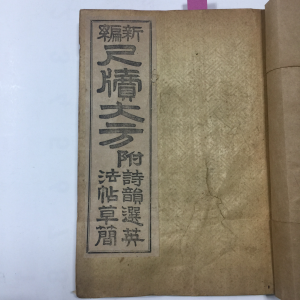 新編
尺牘大方
附詩韻選英
法帖草簡